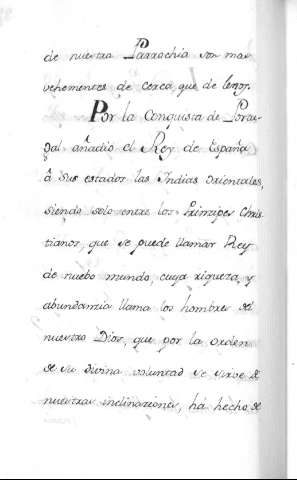 de nuestra Parrochia son mas
vehementes de cerca, que de lexos.
Por la Conquista de Portu-
gal añadio el Rey de España
â sus estados las Indias orientales,
siendo solo entre los Prinsipes Chris
tianos, que se puede llamar Rey
de nuebo mundo, cuya riqueza, y
abundamzia llama los hombres del
nuestro Dios, que por la orden
de su divina voluntad se sirve de
nuestras inclinaziones, há hecho de